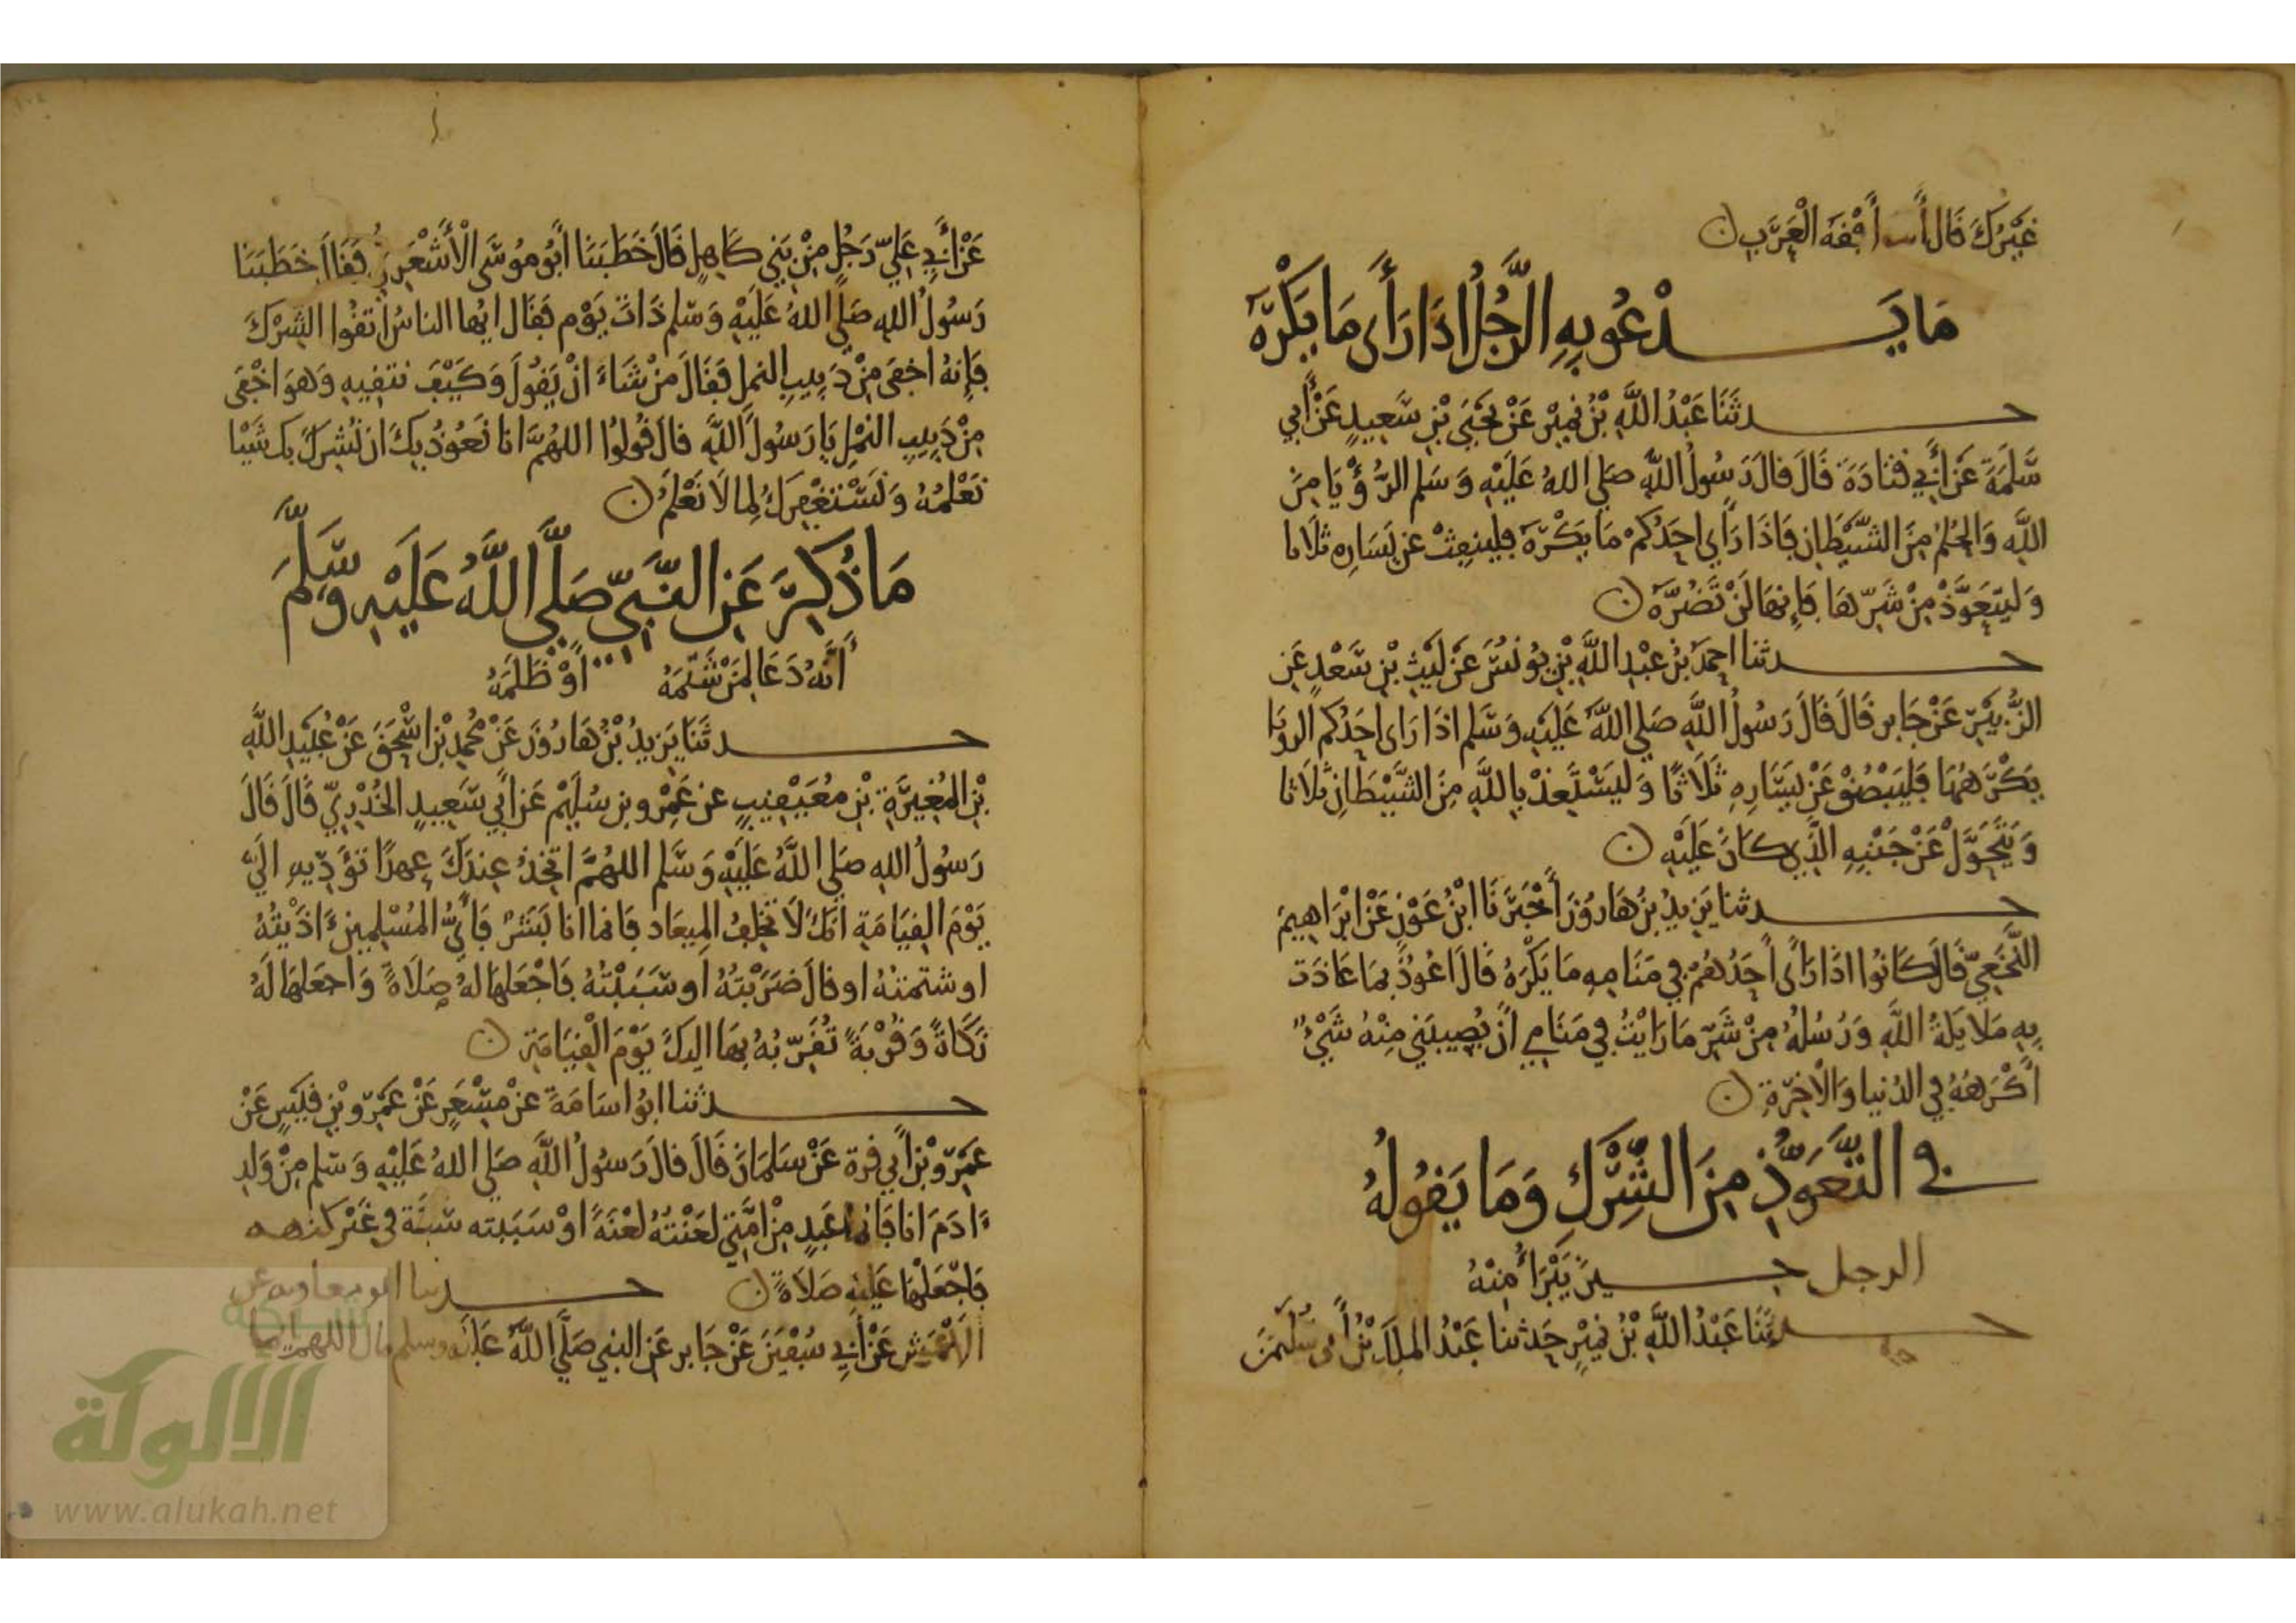 غَيْرُكَ قَالَ أفقه الْعَرَبِ
مَا يَدْعُو بِهِ الرَّجُلُ إِذَا رَأَى مَا يَكْرَهُ
حدثَنَا عَبْدُ اللَّهِ بْنُ نُمَيْرٍ عَنْ يَحْيَى بْنِ سَعِيدٍ عَنْ أَبِي
سَلَمَةَ عَنْ أَبِي قَتَادَةَ قَالَ قالَ رَسُولُ اللَّهِ صَلى اللهُ عَلَيْهِ وَسَلم الرُّؤْيَا مِنَ
اللَّهِ وَالحُلْمُ مِنَ الشَّيْطَانِ فَإذَا رَأَى احَدُكُمْ مَا يَكْرَهُ فلينفِثْ عن يَسَارِه ثَلَاثا
وَليَتَعَوَّذْ مِنْ شَرِّهَا فَإِنهَا لَنْ تَضُرَّهُ
حدثنا احمدُ بْنُ عَبْدِ اللَّهِ بْنِ يُونُسَ عَنْ لَيْثِ بْنِ سَعْدٍ عَنِ
الزُّبَيْرِ عَنْ جَابر قَالَ قَالَ رَسُولُ اللَّهِ صَلى اللَّهُ عَلَيْهِ وَسَلم اذَا رَاى احَدُكُم الرويَا
يَكْرَهُهَا فَلْيَبْصُقْ عَنْ يَسَارِهِ ثَلَاثًا وَليَسْتَعِذْ بِاللَّهِ مِنَ الشَّيْطَانِ ثَلَاثا
وَيَتَحَوَّلْ عَنْ جَنْبِهِ الَّذِي كَانَ عَلَيْهِ
حدثنا يَزِيدُ بْنُ هَارُونَ أَخْبَرَنَا ابْنُ عَوْنٍ عَنْ ابْرَاهِيمَ
النَّخَعِيِّ قَالَ كَانُوا اذَا رَأَى أَحَدُهُمْ فِي مَنَامِهِ مَا يَكْرَهُ قَالَ اعُوذُ بِمَا عَاذَت
بِهِ مَلَايكَةُ اللَّهِ وَرُسُلُهُ مِنْ شَرِّ مَا رَايْتُ فِي مَنَامِي أَنْ يُصِيبَنِي مِنْهُ شَيْءٌ
أَكْرَهُهُ فِي الدُنيا وَالْآخِرَةِ
فِي التَّعَوُّذِ مِنَ الشِّرْكِ وَمَا يَقُولُهُ
الرجل حِينَ يَبْرَأُ مِنْهُ
حدثَنَا عَبْدُ اللَّهِ بْنُ نُمَيْرٍ حَدثنا عَبْدُ المَلِكِ بْنُ أَبِي سُلَيْمَن
عَنْ أَبِي عَلِيّ رَجُلٍ مِنْ بَنِي كَاهِلٍ قَالَ خَطَبَنَا أَبُو مُوسَى الْأَشْعَرِيُّ فَقَالَ خَطَبَنَا
رَسُولُ اللهِ صَلى اللهُ عَلَيْهِ وَسَلم ذَاتَ يَوْم فَقَال ايها الناسُ اتقُوا الشِّرْكَ
فَإِنهُ اخفَى مِنْ دَبِيبِ النملِ فَقَالَ مَنْ شَاءَ انْ يَقُولَ وَكَيْفَ نتقيهِ وَهوَ اخْفَى
مِنْ دَبِيبِ النمْلِ يَا رَسُولَ اللَّهِ قالَ قُولُوا اللهُمَّ انا نَعُوذُ بِكَ انْ نُشْرِكَ بِكَ شَيْئا
نَعْلَمُهُ وَنَسْتَغْفِرُكَ لِمَا لَا نَعْلَمُ
مَا ذُكِرَ عَنِ النَّبِيِّ صَلَّى اللَّهُ عَلَيْهِ وَسَلَّمَ
أَنَّهُ دَعَا لِمَنْ شَتَمَهُ أَوْ ظَلَمَهُ
حدثَنَا يَزِيدُ بْنُ هَارُونَ عَنْ مُحَمدِ بْنِ اسْحَقَ عَنْ عُبَيْدِ اللَّهِ
بْنِ المُغِيرَةِ بْنِ مُعَيْقِيبٍ عن عَمْرِو بن سُلَيْمٍ عَنْ أَبِي سَعِيدٍ الخُدْرِيِّ قَالَ قَالَ
رَسُولُ اللهِ صَلى اللَّهُ عَلَيْهِ وَسَلم اللهُمَّ اتَّخِذُ عِندَكَ عهدًا تُؤَدِّيهِ الَيَّ
يَوْمَ القِيَامَةِ انكَ لَا تُخْلِفُ المِيعَاد فَإنما انا بَشَرٌ فَأَيُّ المُسْلِمِينَ ءَاذَيْتُهُ
او شتمتهُ او قالَ ضَرَبْتُهُ او سَبَبْتُهُ فَاجْعَلهَا لهُ صَلَاةً وَاجعَلهَا لَهُ
زَكَاةً وَقُرْبَةً تُقَرِّبُهُ بِهَا اليكَ يَوْمَ الْقِيَامَةِ
حدثنا ابُو اسَامَةَ عن مِسْعَرٍ عَنْ عَمْرِو بْنِ قَيْسٍ عَنْ
عَمْرِو بْنِ أَبِي قرة عَنْ سَلمَانَ قَالَ قالَ رَسُولُ اللَّهِ صَلى اللهُ عَلَيْهِ وَسَلم مِنْ وَلَدِ
ءَادَمَ انا فَأيما عَبدٍ مِنْ امَّتِي لَعَنْتُهُ لَعْنَةً اوْ سَبَبته سَبَّة فِي غَيْر كنهه
فَاجْعَلْهَا عَلَيْهِ صَلَاةً حدثنا ابو معاويه عن
الاعْمَش عَنْ أَبِي سُفْيَنَ عَنْ جَابر عَنِ النبي صَلَّى اللَّهُ عَلَيْه وسلم قال اللهم ايما
شبكة
الألوكة
www.alukah.net